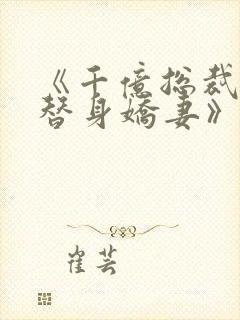 《千億總裁
替身嬌妻》
崔芸